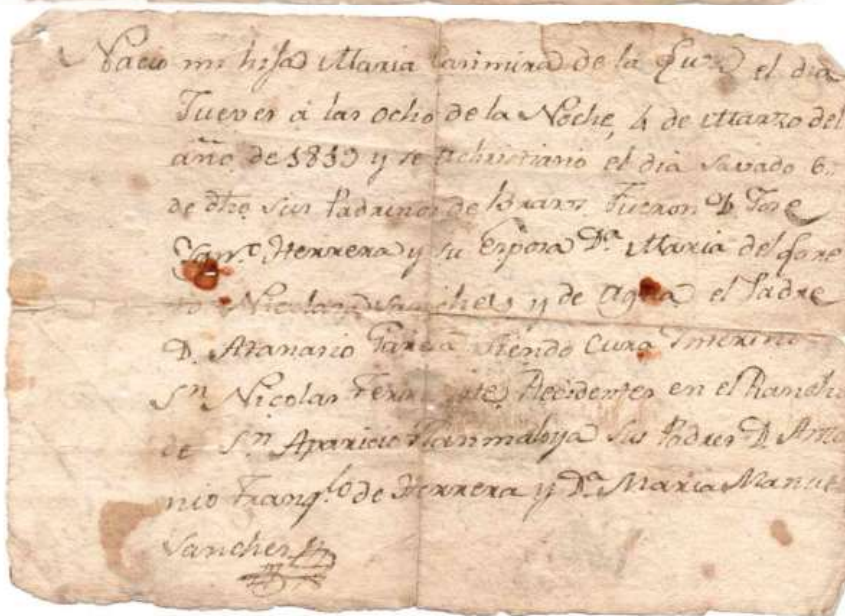 Nacio mi hija Maria Casimira de la Luz el dia
Jueves á las ocho de la Noche, 4 de Marzo del
año de 1819 y se Achristiano el dia savado 6
de dho sus Padrinos de Braz. Fueron D. Jose
Herrera y su Esposa Da. Maria del Lore
to Nicolasa Sanches y de Agua el Padre
D. Atanasio Garcia siendo Cura Interino
Sn Nicolas Recidentes en el Rancho
de Sn Aparicio sus Padres D. Anto
nio Franqlo de Herrera y Da. Maria Manuel
Sanches